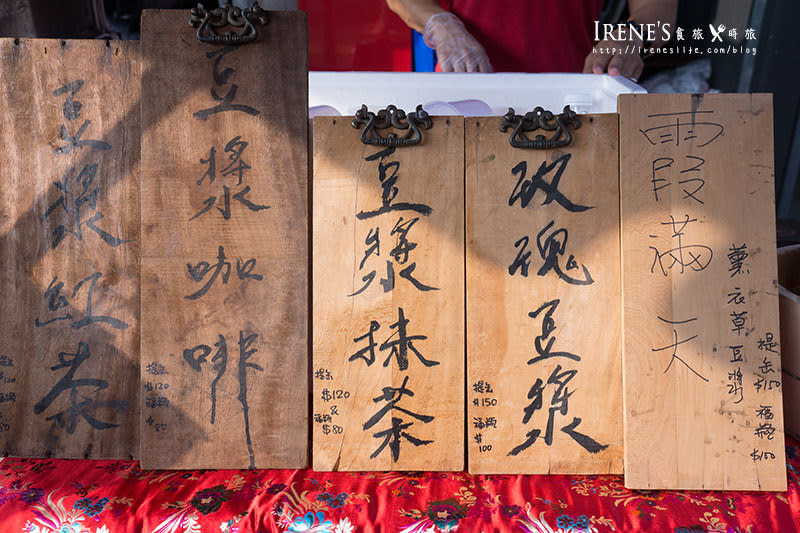 IRENE'S 食旅時旅
http://ireneslife.com/blog/
豆漿紅茶
豆漿咖啡
提缶
$120
福瓶
$80
豆漿抹茶
提缶
$120
&
福瓶
$80
玫瑰豆漿
提缶
$150
福瓶
$100
霞滿天
薰衣草豆漿
提缶 $150
福瓶